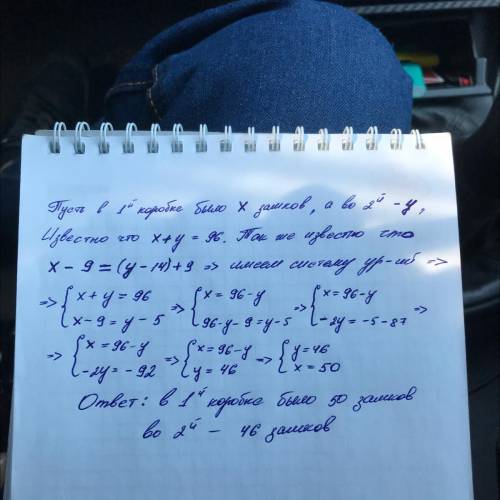 Пусть в 1й коробке было x замков, а во 2й - y,
Известно что x+y = 96. Так же известно что
x - 9 = (y - 14) + 9 => имеем систему ур-ий =>
=> { x + y = 96 => { x = 96 - y => { x = 96 - y
x - 9 = y - 5 96 - y - 9 = y - 5 -2y = -5 - 87 =>
=> { x = 96 - y => { x = 96 - y => { y = 46
-2y = -92 y = 46 x = 50
Ответ: в 1й коробке было 50 замков
во 2й - 46 замков